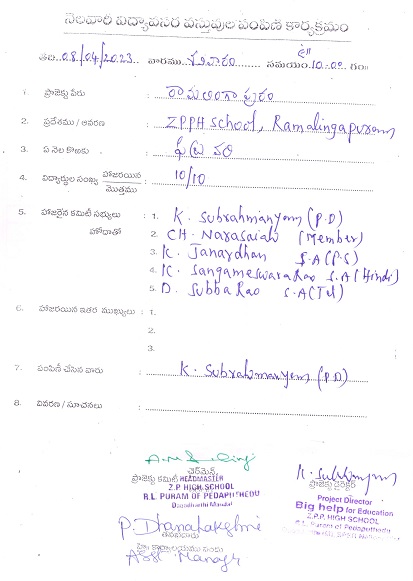 నెలవారీ విద్యావసర వస్తువుల పంపిణీ కార్యక్రమం
తేది: 08/04/2023 వారము శనివారం సమయం: 10-00 గం॥
1. ప్రాజెక్టు పేరు : రామలింగాపురం
2. ప్రదేశము / ఆవరణ : ZPPH school, Ramalingapuram
3. ఏ నెల కొఱకు : ఫిబ్రవరి
4. విద్యార్థుల సంఖ్య హాజరయిన / మొత్తము : 10/10
5. హాజరైన కమిటీ సభ్యులు : 1. K. Subrahmanyam (P.D)
హోదాతో 2. CH. Narasaiah (Member)
3. K. Janardhan S.A (P.S)
4. K. Sangameswara Rao S.A (Hindi)
5. D. Subba Rao S.A (Tel)
6. హాజరయిన ఇతర ముఖ్యులు : 1.
2.
3.
7. పంపిణీ చేసిన వారు : K. Subrahmanyam (P.D)
8. వివరణ / సూచనలు :
చైర్మెన్
ప్రాజెక్టు కమిటీ HEADMASTER
Z.P. HIGH SCHOOL
R.L. PURAM OF PEDAPUTHEDU
Dagadharthi Mandal
K. Subrahmanyam
ప్రాజెక్టు డైరెక్టర్
Project Director
Big help for Education
Z.P.P. HIGH SCHOOL
R.L. Puram of Pedaputhedu
P. Dhanalakshmi
తనిఖీదారు
Asst. Manager